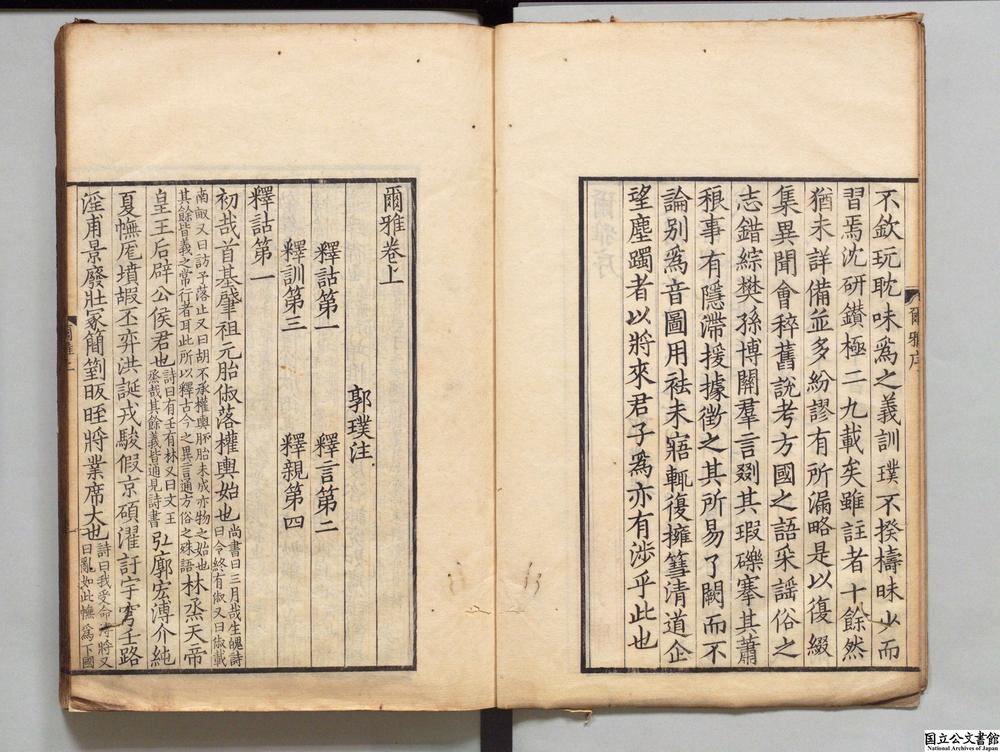 不欽玩耽味爲之義訓璞不揆檮昧少而
習焉沈研鑽極二九載矣雖註者十餘然
猶未詳備並多紛謬有所漏略是以復綴
集異聞會稡舊說考方國之語采謡俗之
志錯綜樊孫博關羣言剟其瑕礫搴其蕭
稂事有隱滯援據徵之其所易了闕而不
論別爲音圖用袪未寤輒復擁篲清道企
望塵躅者以將來君子爲亦有涉乎此也
爾雅序
爾雅卷上
郭璞注
釋詁第一 釋言第二
釋訓第三 釋親第四
釋詁第一
初哉首基肈祖元胎俶落權輿始也尚書曰三月哉生魄詩曰令終有俶又曰俶載
南畝又曰訪予落止又曰胡不承權輿胚胎未成亦物之始也其餘皆義之常行者耳此所以釋古今之異言通方俗之殊語林烝天帝
皇王后辟公侯君也詩曰有壬有林又曰文王烝哉其餘義皆通見詩書弘廓宏溥介純
夏幠厖墳嘏丕弈洪誕戎駿假京碩濯訏宇穹壬路
淫甫景廢壯冢簡箌昄晊將業席大也詩曰我受命溥將又曰亂如此幠爲下國
国立公文書館
National Archives of Japan